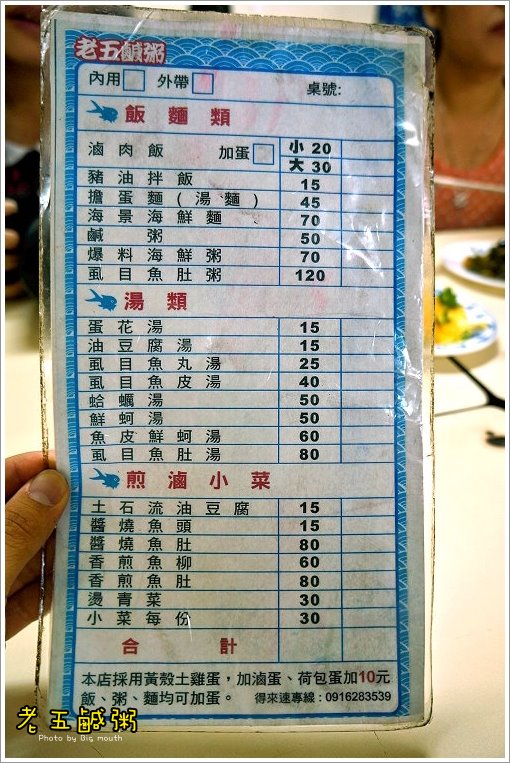 老五鹹粥
內用□ 外帶□ 桌號:
飯麵類
滷肉飯 加蛋□ 小 20
大 30
豬油拌飯 15
擔蛋麵(湯麵) 45
海景海鮮麵 70
鹹粥 50
爆料海鮮粥 70
虱目魚肚粥 120
湯類
蛋花湯 15
油豆腐湯 15
虱目魚丸湯 25
虱目魚皮湯 40
蛤蠣湯 50
鮮蚵湯 50
魚皮鮮蚵湯 60
虱目魚肚湯 80
煎滷小菜
土石流油豆腐 15
醬燒魚頭 15
醬燒魚肚 80
香煎魚柳 60
香煎魚肚 80
燙青菜 30
小菜每份 30
合計
本店採用黃殼土雞蛋，加滷蛋、荷包蛋加10元
飯、粥、麵均可加蛋。 得來速專線：0916283539
老五鹹粥
Photo by Big mouth